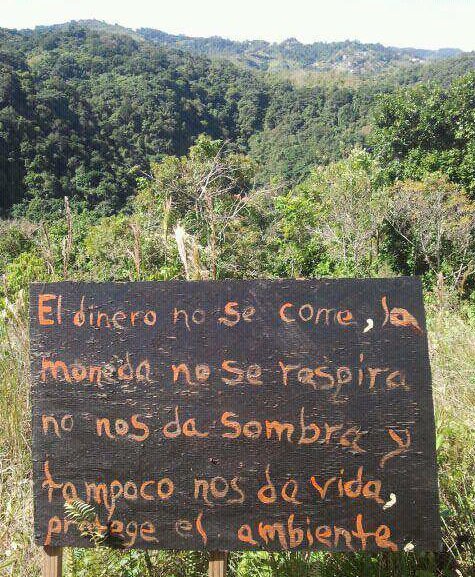 El dinero no se come, la
moneda no se respira
no nos da sombra y
tampoco nos da vida,
protege el ambiente.